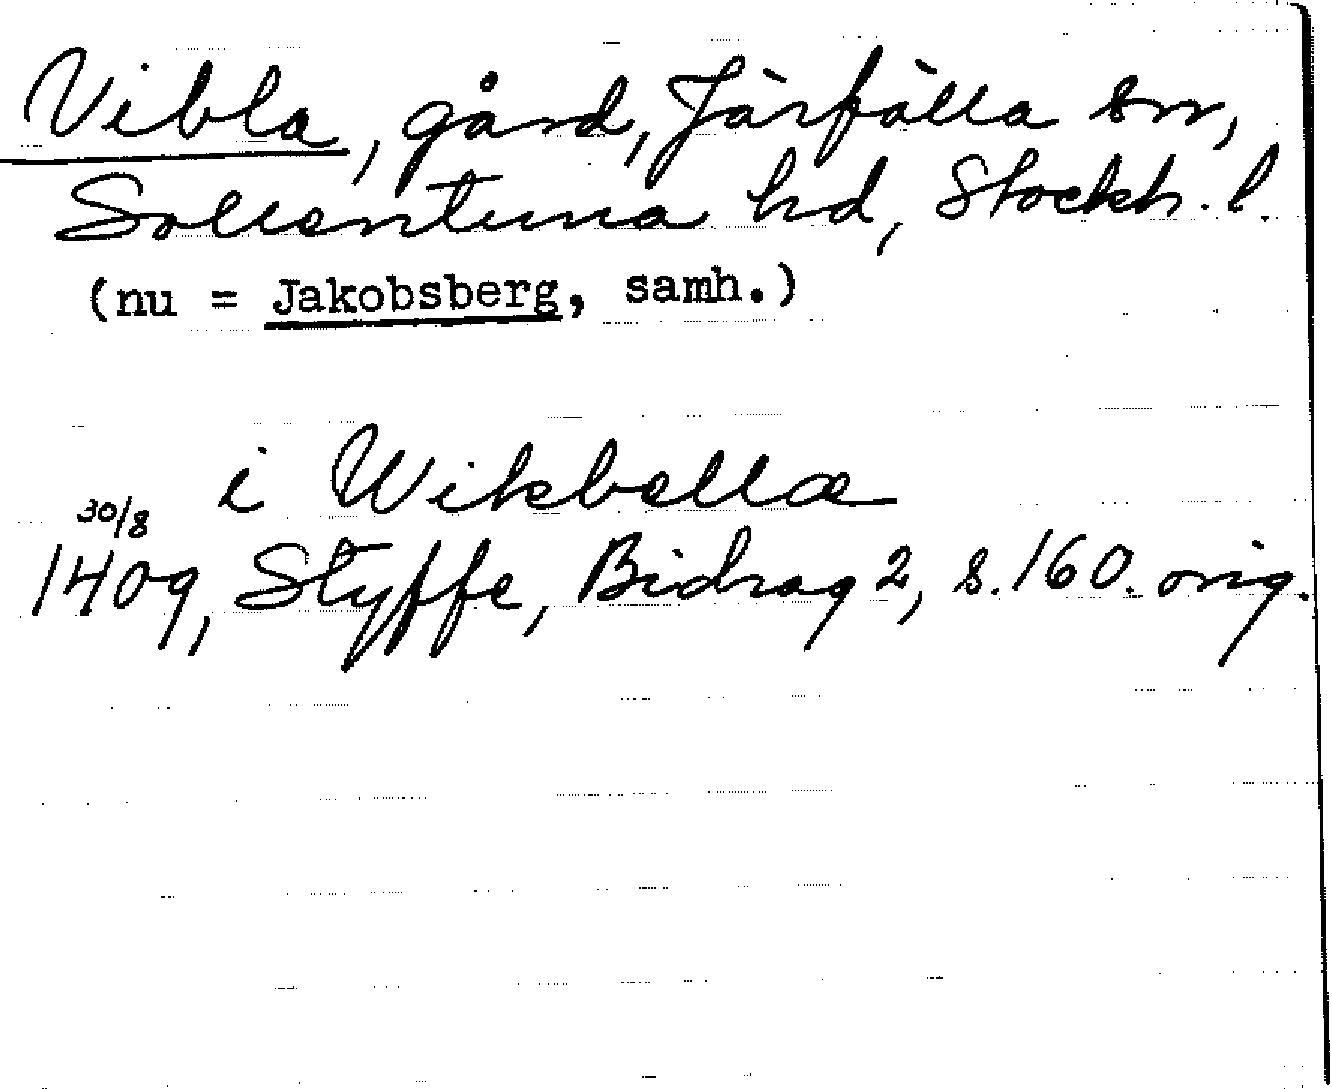 Vibla, gård, Järfälla sn,
Sollentuna hd, Stockh. l.
(nu = Jakobsberg, samh.)
i Wikbollæ
30/8
1409, Styffe, Bidrag 2, s. 160. orig.